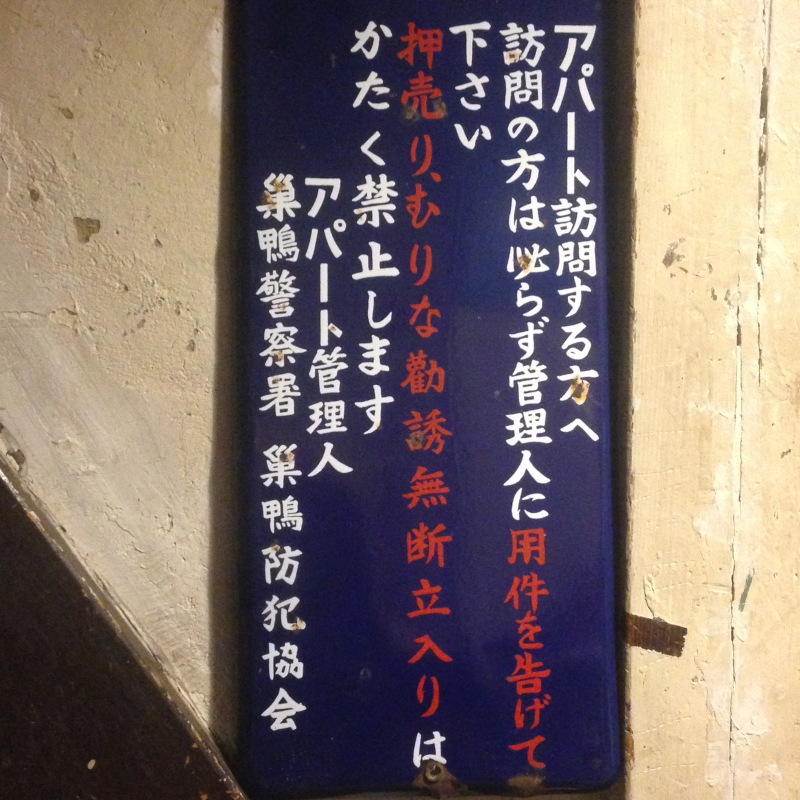 アパート訪問する方へ
訪問の方は必らず管理人に用件を告げて
下さい
押売り、むりな勧誘無断立入りは
かたく禁止します
アパート管理人
巣鴨警察署 巣鴨防犯協会